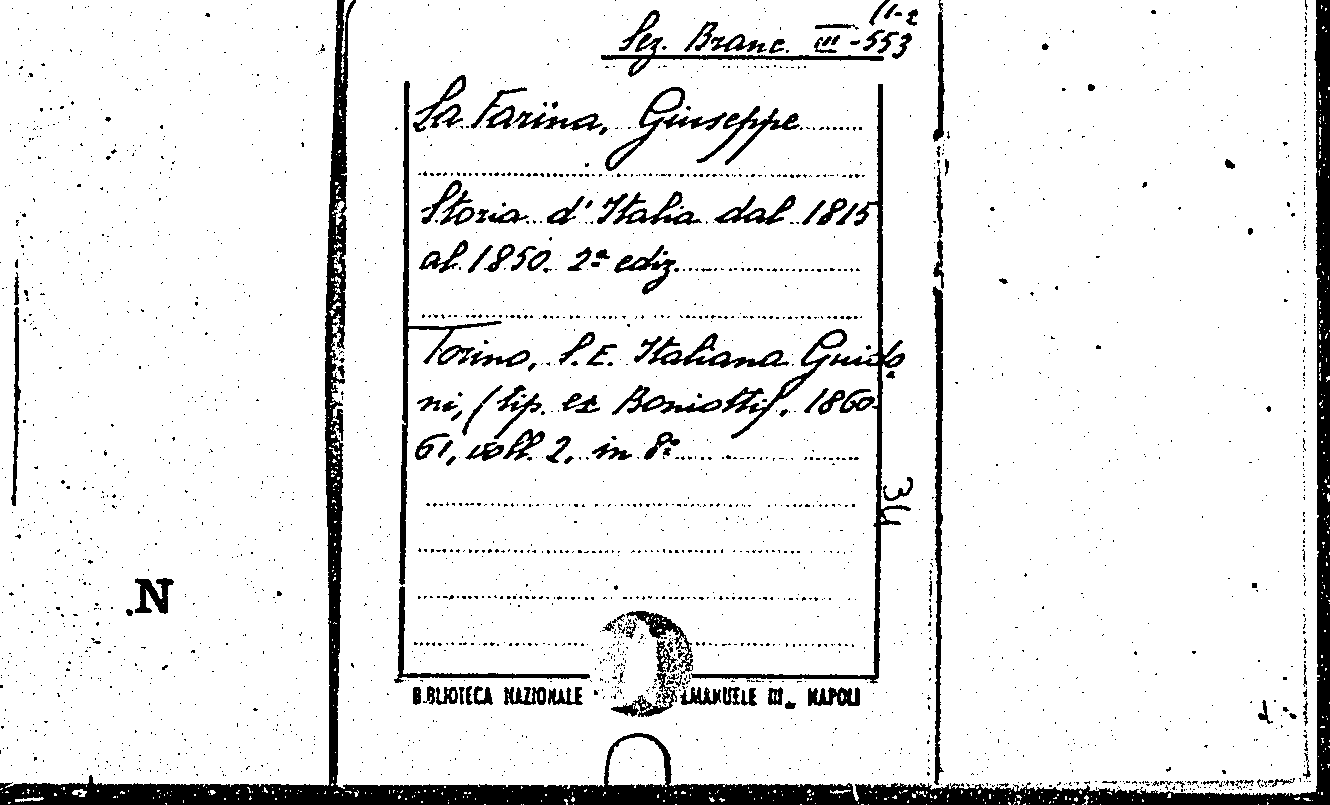 11-2
Sez. Branc. III-553
La Farina, Giuseppe
Storia d'Italia dal 1815
al 1850. 2ª ediz.
Torino, S. E. Italiana Guido
ni, (tip. ex Boniotti), 1860-
61, voll. 2, in 8º
34
N
BIBLIOTECA NAZIONALE MANUELE III - NAPOLI